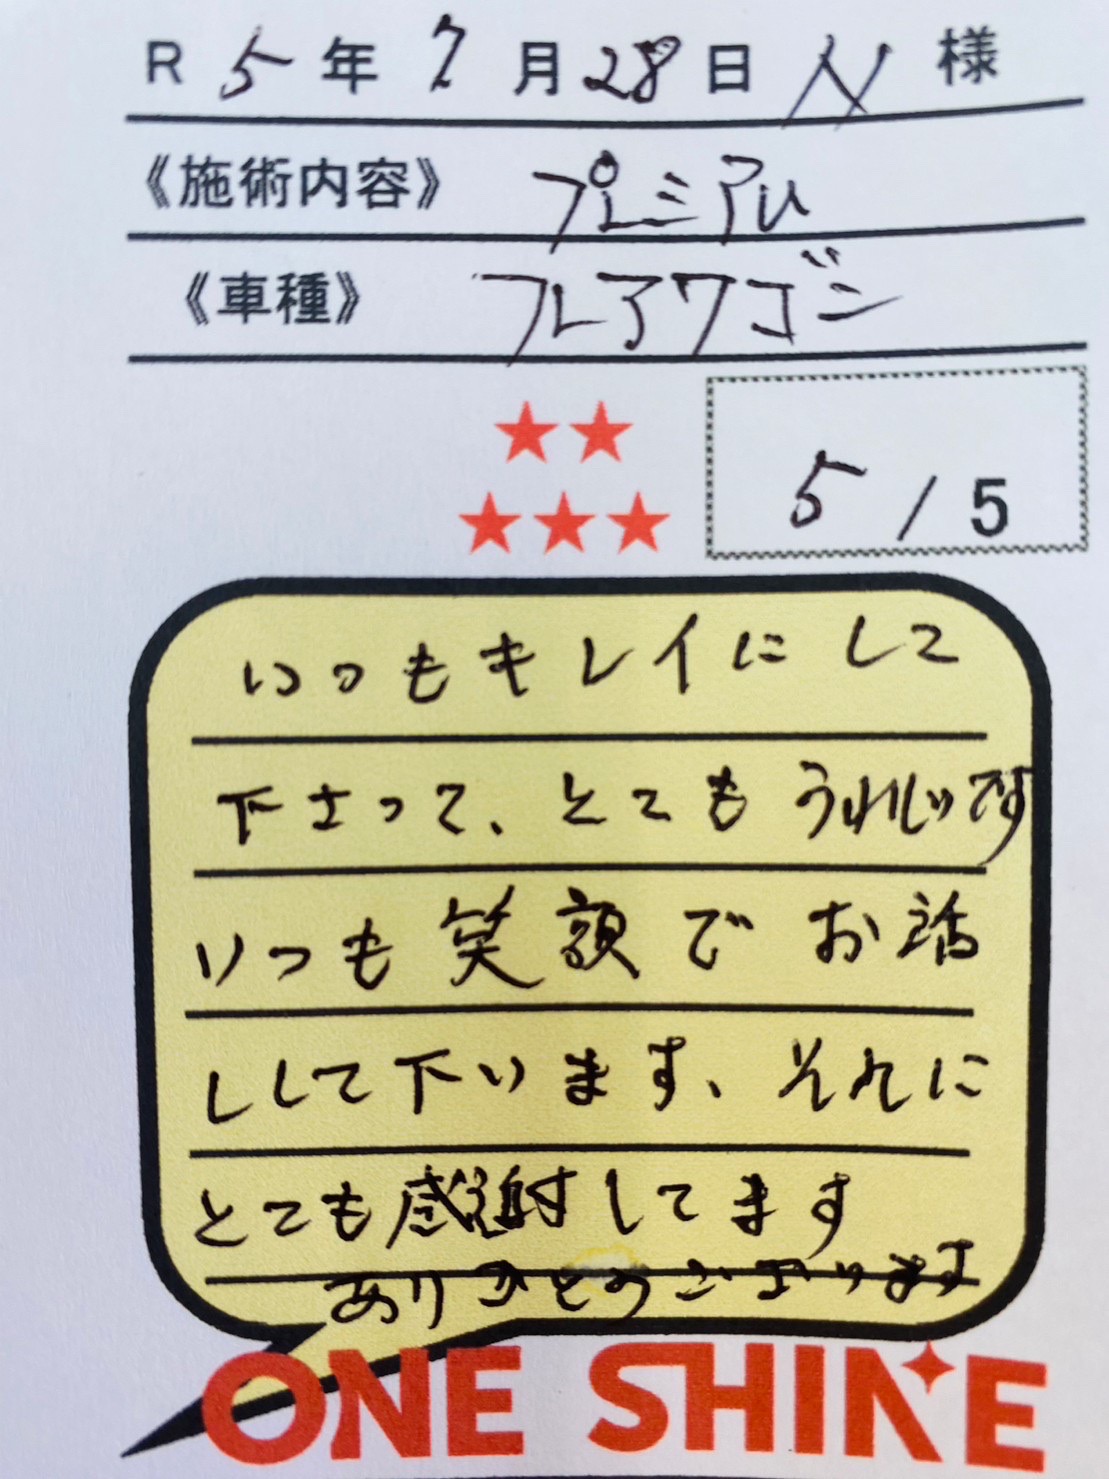 R 5年 7月28日 N 様
《施術内容》 プレミアム
《車種》 フレアワゴン
5 / 5
いつもキレイにして
下さって、とてもうれしいです
いつも笑顔でお話
ししして下います、それに
とても感謝してます
ありがとうございます
ONE SHINE